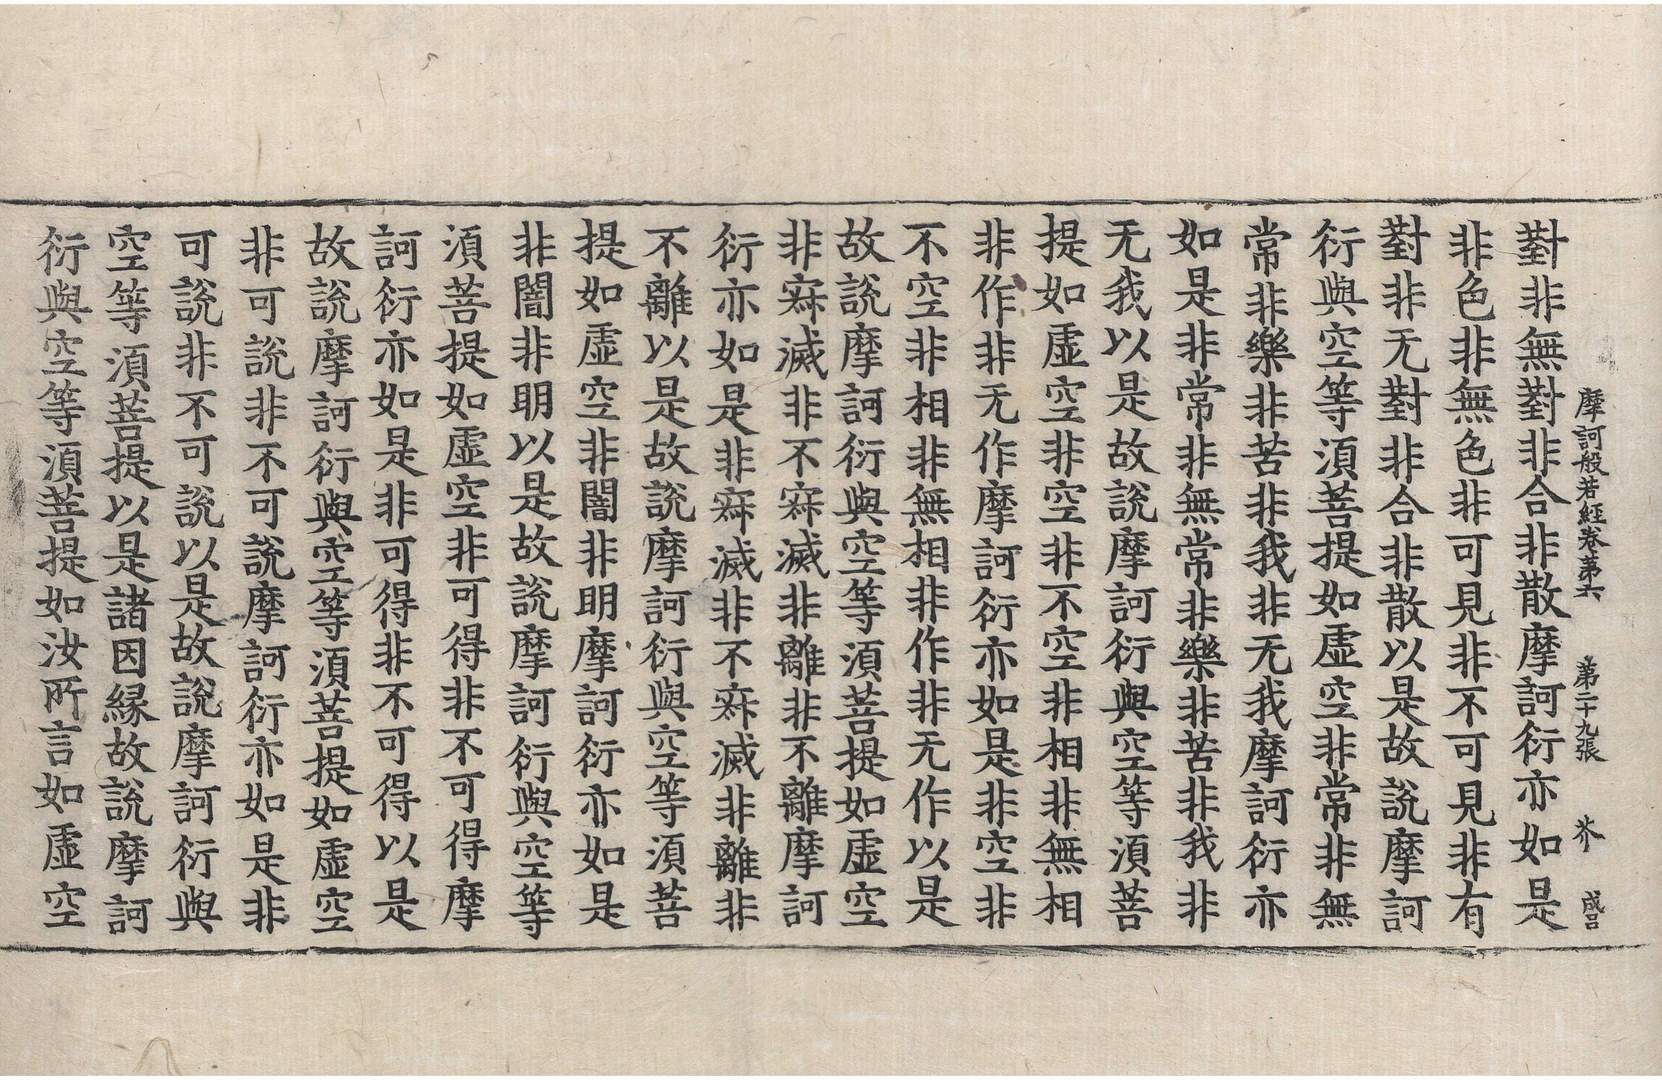 摩訶般若經卷第六 第二十九張 芥 成呂
對非無對非合非散摩訶衍亦如是
非色非無色非可見非不可見非有
對非无對非合非散以是故說摩訶
衍與空等須菩提如虛空非常非無
常非樂非苦非我非无我摩訶衍亦
如是非常非無常非樂非苦非我非
无我以是故說摩訶衍與空等須菩
提如虛空非空非不空非相非無相
非作非无作摩訶衍亦如是非空非
不空非相非無相非作非无作以是
故說摩訶衍與空等須菩提如虛空
非寂滅非不寂滅非離非不離摩訶
衍亦如是非寂滅非不寂滅非離非
不離以是故說摩訶衍與空等須菩
提如虛空非闇非明摩訶衍亦如是
非闇非明以是故說摩訶衍與空等
須菩提如虛空非可得非不可得摩
訶衍亦如是非可得非不可得以是
故說摩訶衍與空等須菩提如虛空
非可說非不可說摩訶衍亦如是非
可說非不可說以是故說摩訶衍與
空等須菩提以是諸因緣故說摩訶
衍與空等須菩提如汝所言如虛空